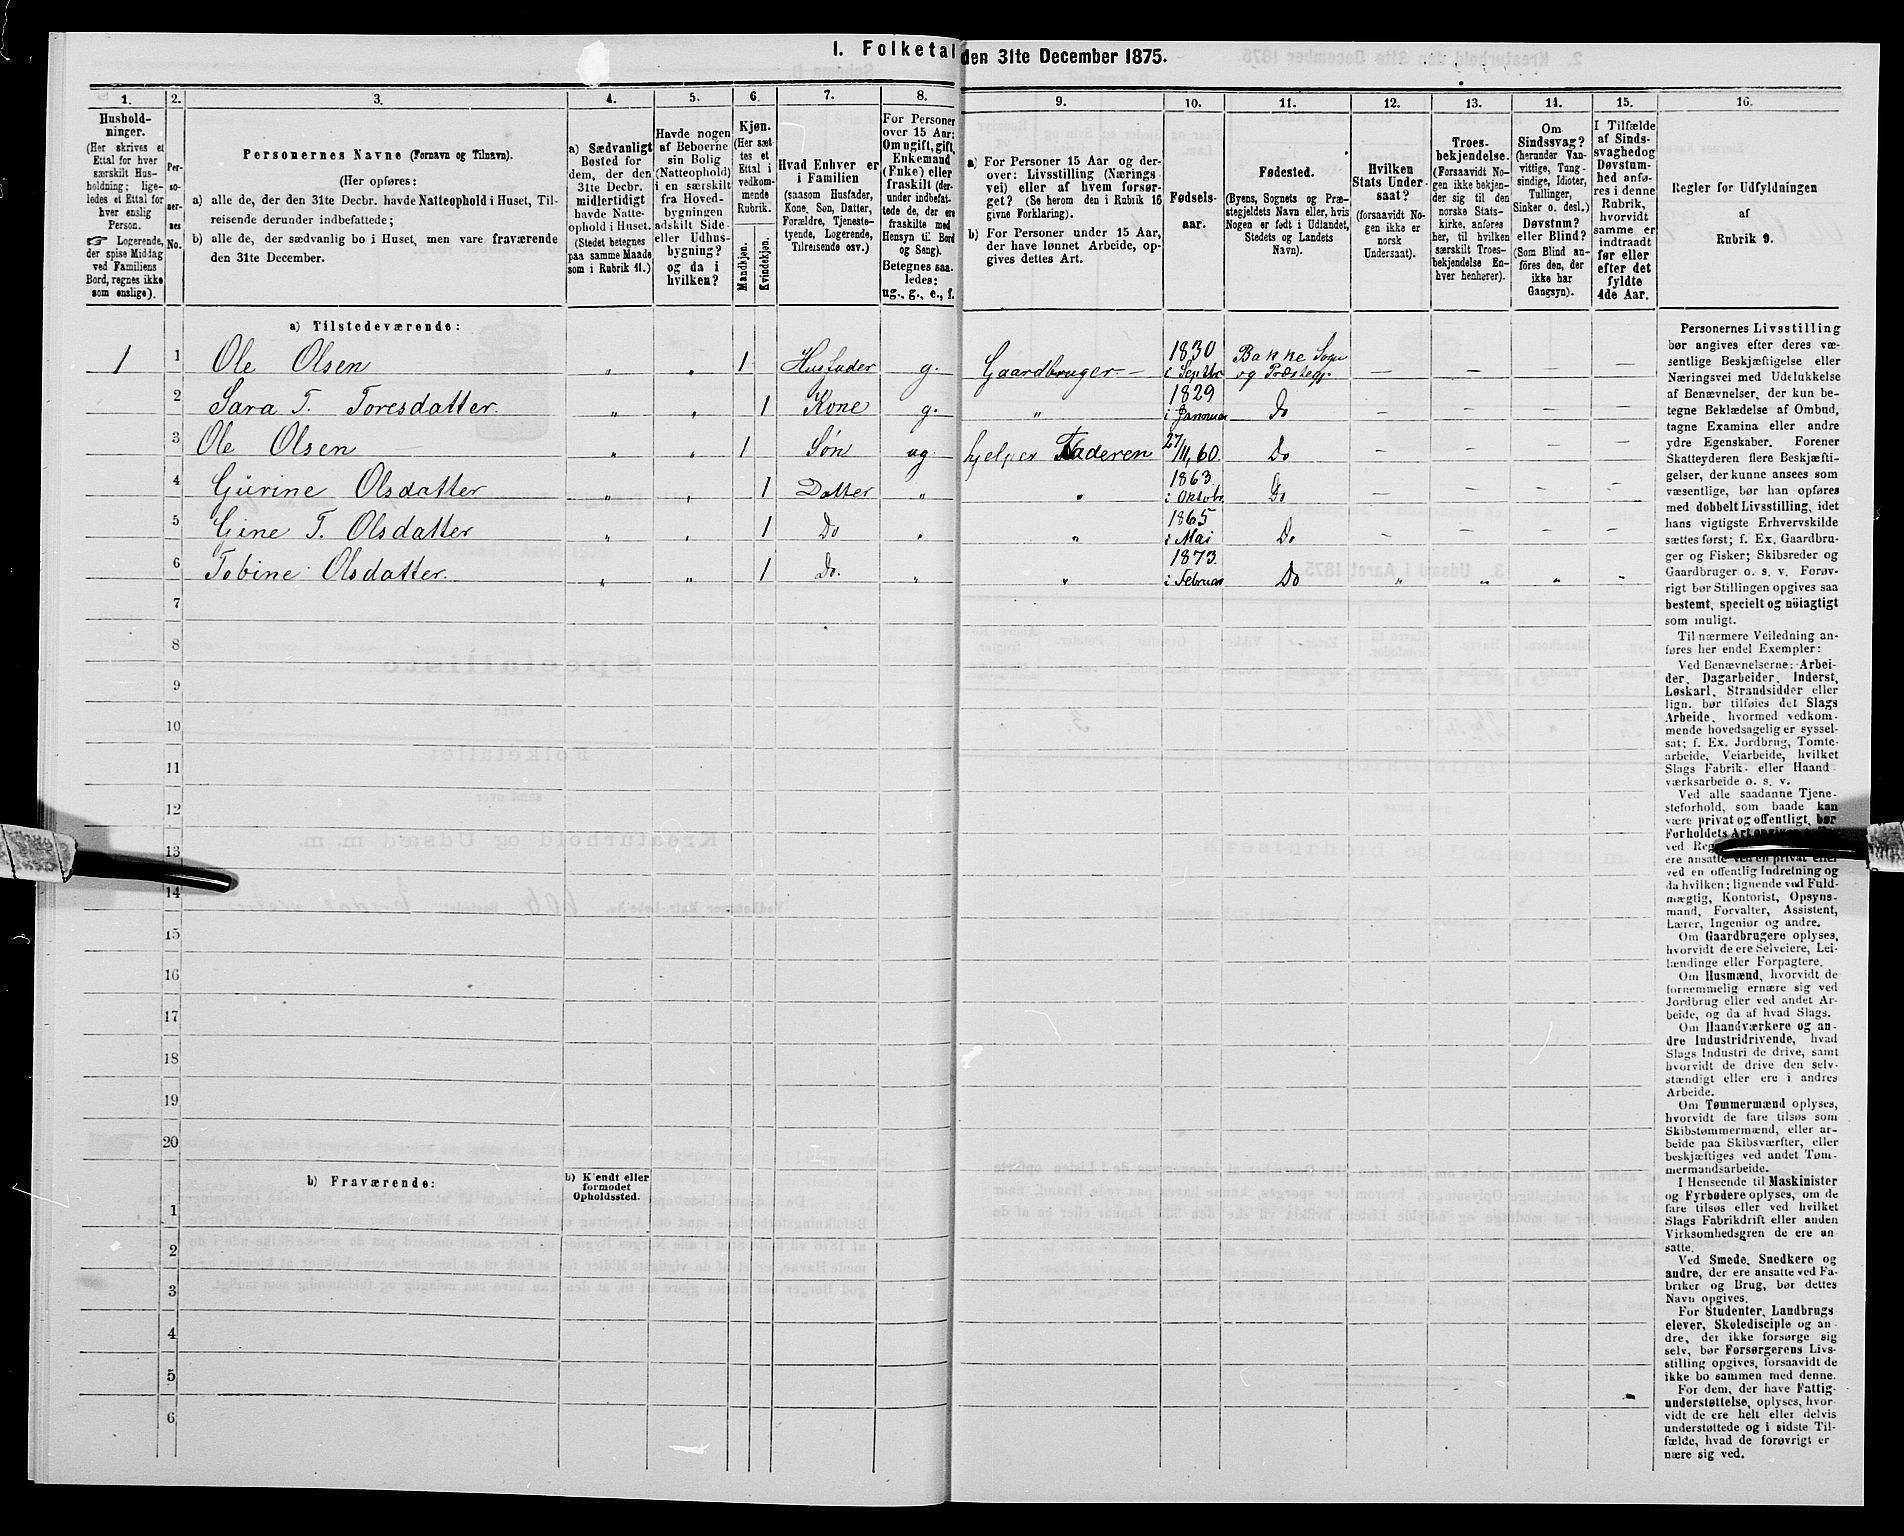 I. Folketal den 31te December 1875.
1. 2. 3. 4. 5. 6. 7. 8. 9. 10. 11. 12. 13. 14. 15. 16.
Hushold-
ninger.
(Her skrives et
Ettal for hver
særskilt Hus-
holdning; lige-
ledes et Ettal for
hver enslig
Person.
☞ Logerende,
der spise Middag
ved Familiens
Bord, regnes ikke
som enslige).
Per-
so-
ner-
nes
No.
Personernes Navne (Fornavn og Tilnavn).
(Her opføres:
a) alle de, der den 31te Decbr. havde Natteophold i Huset, Til-
reisende derunder indbefattede;
b) alle de, der sædvanlig bo i Huset, men vare fraværende
den 31te December.
a) Sædvanligt
Bosted for
dem, der den
31te Decbr.
midlertidigt
havde Natte-
ophold i Huset.
(Stedet betegnes
paa samme Maade
som i Rubrik 11.)
Havde nogen
af Beboerne
sin Bolig
(Natteophold)
i en særskilt
fra Hoved-
bygningen
adskilt Side-
eller Udhus-
bygning?
og da i
hvilken?
Kjøn.
(Her sæt-
tes et
Ettal i
vedkom-
mende
Rubrik.
Mandkjøn.
Kvindekjøn.
Hvad Enhver er
i Familien
(saasom Husfader,
Kone, Søn, Datter,
Forældre, Tjeneste-
tyende, Logerende,
Tilreisende osv.)
For Personer
over 15 Aar:
Om ugift, gift,
Enkemand
(Enke) eller
fraskilt (der-
under indbefat-
tede de, der ere
fraskilte med
Hensyn til Bord
og Seng).
Betegnes saa-
ledes:
ug., g., e., f.
a) For Personer 15 Aar og der-
over: Livsstilling (Nærings
vei) eller af hvem forsør-
get? (Se herom den i Rubrik 16
givne Forklaring).
b) For Personer under 15 Aar,
der have lønnet Arbeide, op-
gives dettes Art.
Fødsels-
aar.
Fødested.
(Byens, Sognets og Præ-
stegjeldets Navn eller, hvis
Nogen er født i Udlandet,
Stedets og Landets
Navn).
Hvilken
Stats Under-
saat?
(forsaavidt No-
gen ikke er
norsk
Undersaat).
Troes-
bekjendelse.
(Forsaavidt No-
gen ikke bekjen-
der sig til den
norske Stats-
kirke, anføres
her, til hvilken
særskilt Troes-
bekjendelse En-
hver henhører).
Om
Sindssvag?
(herunder Van-
vittige, Tung-
sindige, Idioter,
Tullinger,
Sinker o. desl.)
Døvstum?
eller Blind?
(Som Blind an-
føres den, der
ikke har
Gangsyn).
I Tilfælde
af Sinds-
svaghed og
Døvstum-
hed anfø-
res i denne
Rubrik,
hvorvidt
samme er
indtraadt
før eller
efter det
fyldte
4de Aar.
Regler for Udfyldningen
af
Rubrik 9.
a) Tilstedeværende:
1 1 Ole Olsen " " 1 Husfader g. Gaardbruger – 1830 i Septbr Bakke Sogn og Præstegj. – – – –
2 Sara T. Toresdatter. " " 1 Kone g. " 1829 i Januar Do – – – –
3 Ole Olsen " " 1 Søn ug. hjelper Faderen 27/11, 60. Do – – – –
4 Gurine Olsdatter " " 1 Datter " " 1863. i Oktobr. Do – – – –
5 Gine T. Olsdatter " " 1 Do " " 1865 i Mai Do – – – –
6 Tobine Olsdatter. " " 1 Do. " " 1873. i Februar Do " " " "
7
8
9
10
11
12
13
14
15
16
17
18
19
20
b) Fraværende:
b) Kjendt eller
formodet
Opholdssted.
1
2
3
4
5
6
Personernes Livsstilling
bør angives efter deres væ-
sentlige Beskjæftigelse eller
Næringsvei med Udelukkelse
af Benævnelser, der kun be-
tegne Beklædelse af Ombud,
tagne Examina eller andre
ydre Egenskaber. Forener
Skatteyderen flere Beskjæfti-
gelser, der kunne ansees som
væsentlige, bør han opføres
med dobbelt Livsstilling, idet
hans vigtigste Erhvervskilde
sættes først; f. Ex. Gaardbru-
ger og Fisker; Skibsreder og
Gaardbruger o. s. v. Forøv-
rigt bør Stillingen opgives saa
bestemt, specielt og nöiagtigt
som muligt.
Til nærmere Veiledning an-
føres her endel Exempler:
Ved Benævnelserne: Arbei-
der, Dagarbeider, Inderst,
Løskarl, Strandsidder eller
lign. bør tilføies det Slags
Arbeide, hvormed vedkom-
mende hovedsagelig er syssel-
sat; f. Ex. Jordbrug, Tomte-
arbeide, Veiarbeide, hvilket
Slags Fabrik- eller Haand
værksarbeide o. s. v.
Ved alle saadanne Tjene-
steforhold, som baade kan
være privat og offentligt, bør
Forholdets Art
ved
ere ansatte ved en privat eller
ved en offentlig Indretning og
da hvilken; lignende ved Fuld-
mægtig, Kontorist, Opsyns-
mand, Forvalter, Assistent,
Lærer, Ingeniør og andre.
Om Gaardbrugere oplyses,
hvorvidt de ere Selveiere, Lei-
lændinge eller Forpagtere.
Om Husmænd, hvorvidt de
fornemmelig ernære sig ved
Jordbrug eller ved andet Ar-
beide, og da af hvad Slags.
Om Haandværkere og an-
dre Industridrivende, hvad
Slags Industri de drive, samt
hvorvidt de drive den selv-
stændigt eller ere i andres
Arbeide.
Om Tømmermænd oplyses,
hvorvidt de fare tilsøs som
Skibstømmermænd, eller ar-
beide paa Skibsværfter, eller
beskjæftiges ved andet Tøm-
mermandsarbeide.
I Henseende til Maskinister
og Fyrbødere oplyses, om de
fare tilsøs eller ved hvilket
Slags Fabrikdrift eller anden
Virksomhedsgren de ere an-
satte.
Ved Smede, Snedkere og
andre, der ere ansatte ved Fa-
briker og Brug, bør dettes
Navn opgives.
For Studenter, Landbrugs
elever, Skoledisciple og an-
dre, der ikke forsørge sig
selv, bør Forsørgerens Livs-
stilling opgives, forsaavidt de
ikke bo sammen med denne.
For dem, der have Fattig-
understøttelse, oplyses, hvor-
vidt de ere helt eller delvis
understøttede og i sidste Til-
fælde, hvad de forøvrigt er
nære sig ved.